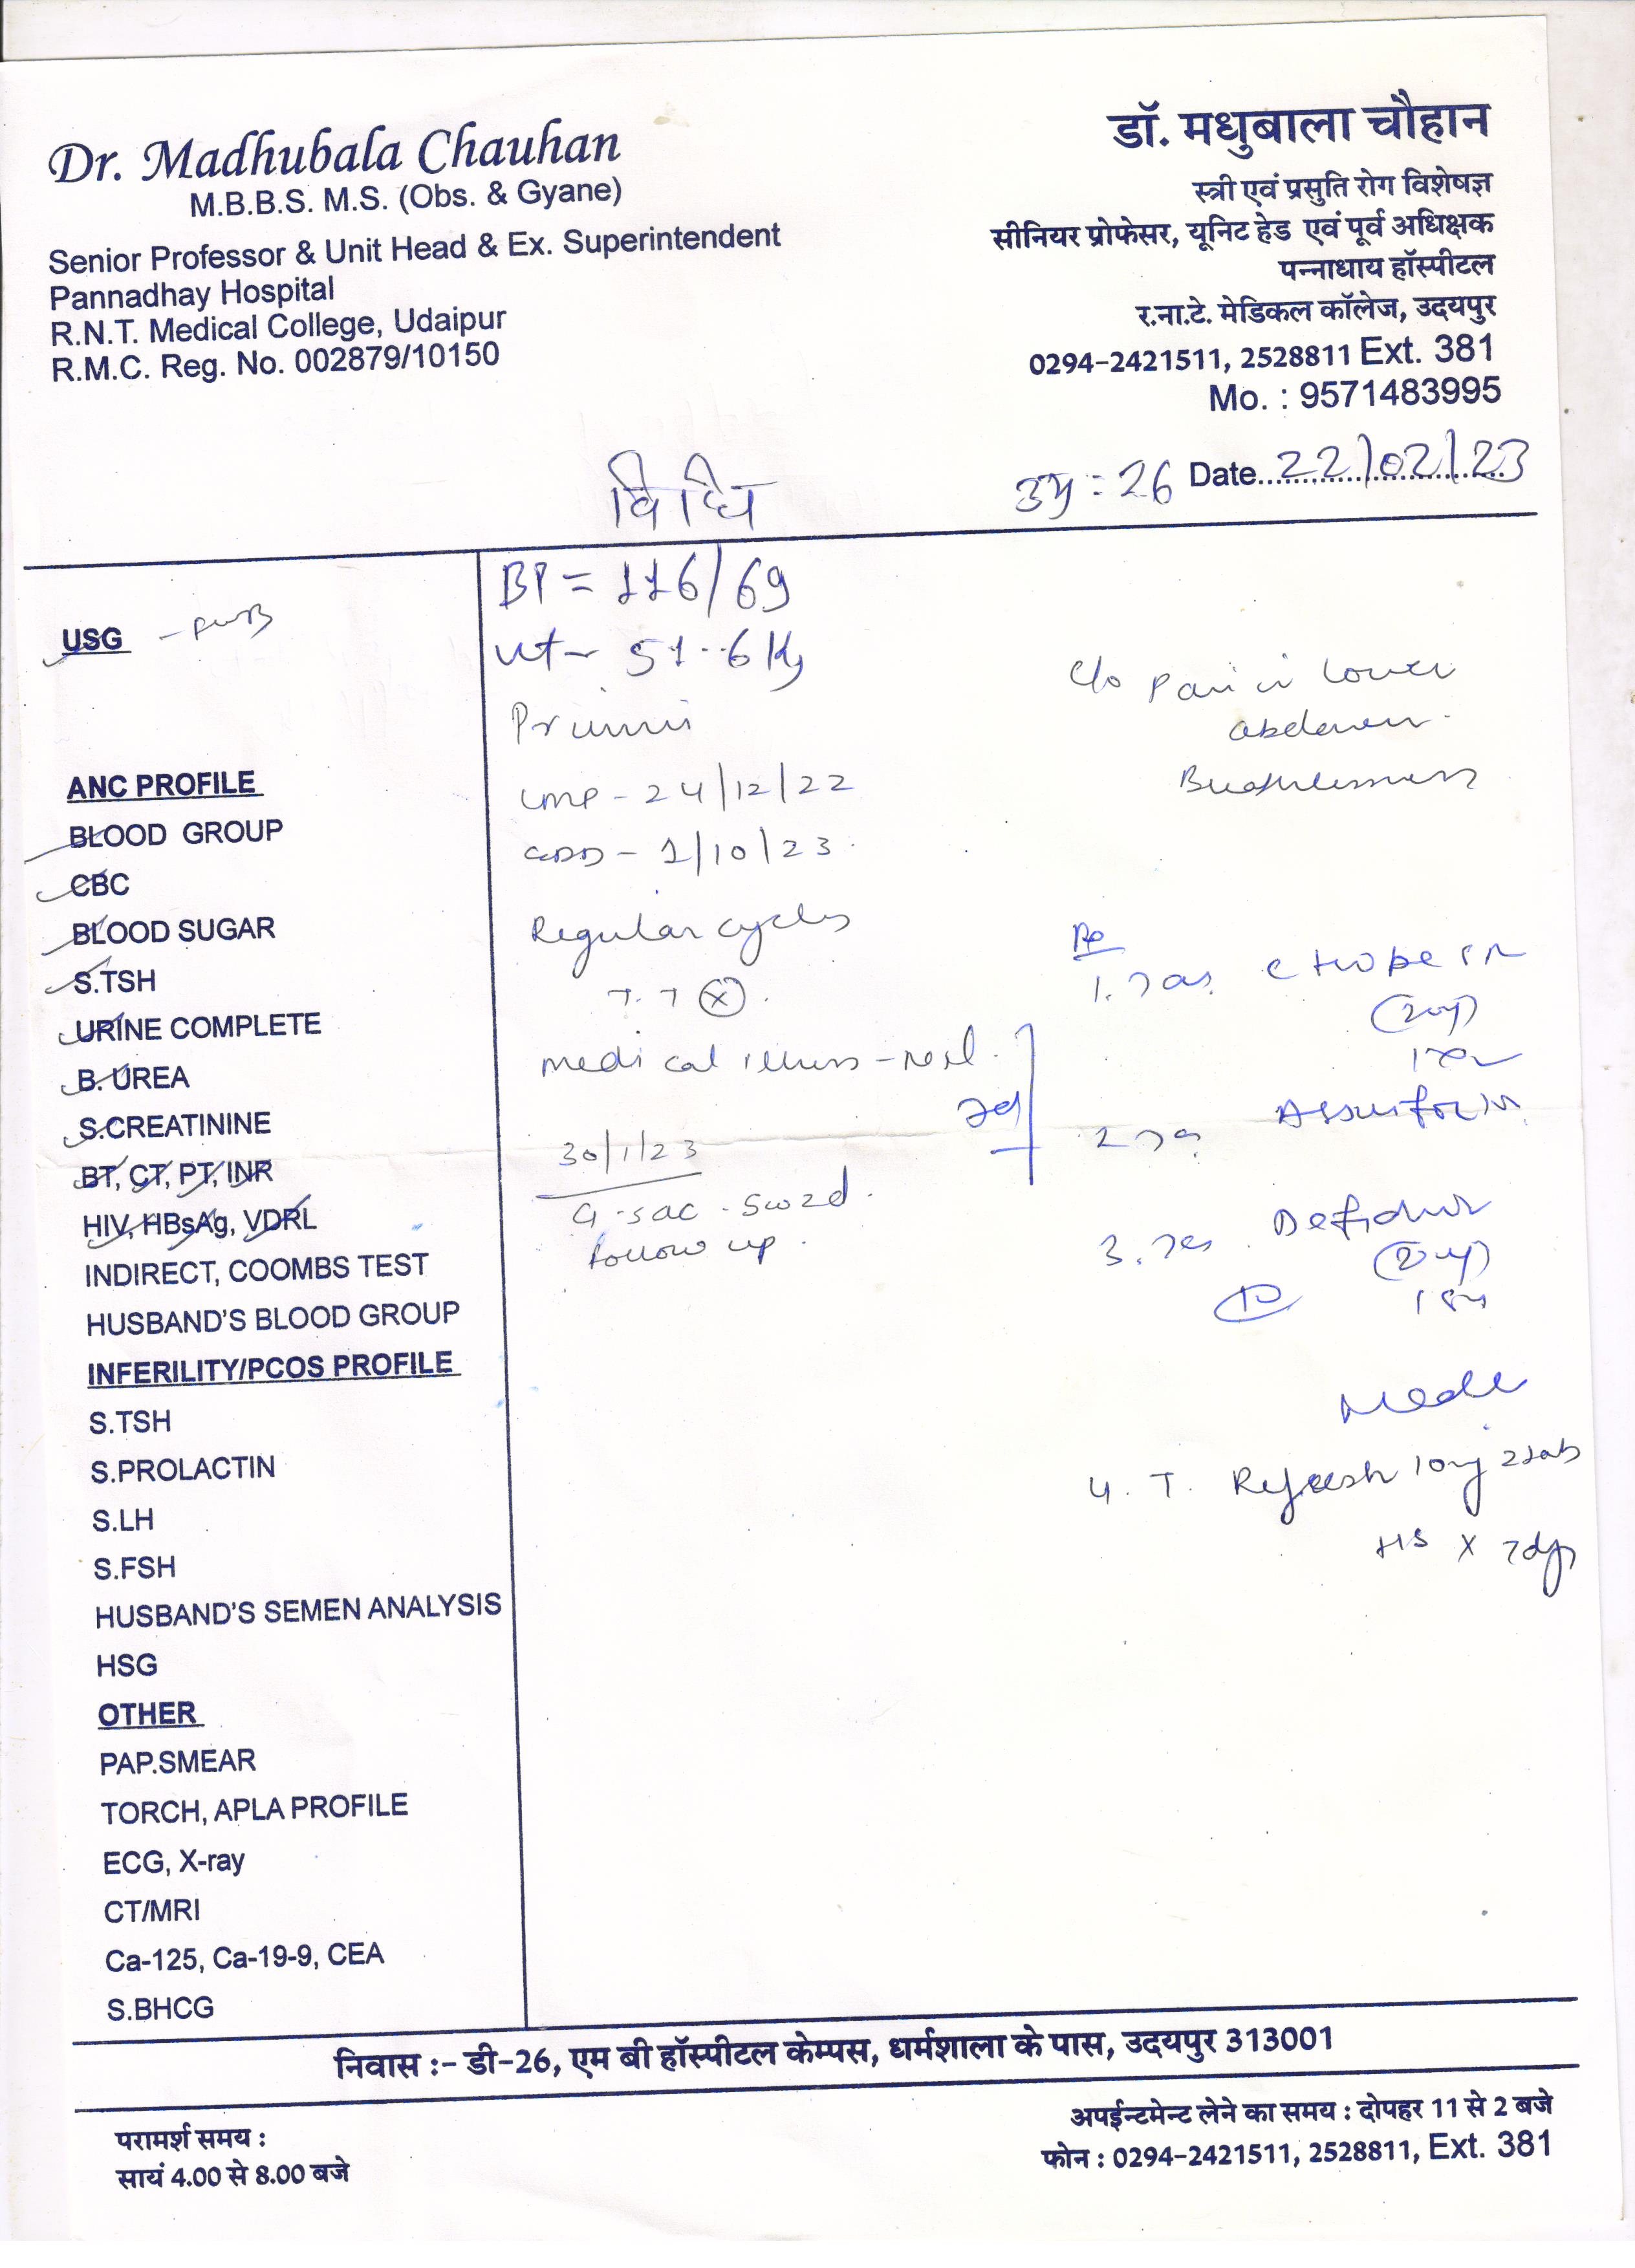 Dr. Madhubala Chauhan
M.B.B.S. M.S. (Obs. & Gyane)
Senior Professor & Unit Head & Ex. Superintendent
Pannadhay Hospital
R.N.T. Medical College, Udaipur
R.M.C. Reg. No. 002879/10150
डॉ. मधुबाला चौहान
स्त्री एवं प्रसुति रोग विशेषज्ञ
सीनियर प्रोफेसर, यूनिट हेड एवं पूर्व अधिक्षक
पन्नाधाय हॉस्पीटल
र.ना.टे. मेडिकल कॉलेज, उदयपुर
0294-2421511, 2528811 Ext. 381
Mo. : 9571483995
विधि
26 Date 22/02/23
USG
ANC PROFILE
BLOOD GROUP
CBC
BLOOD SUGAR
S.TSH
URINE COMPLETE
B. UREA
S.CREATININE
BT, CT, PT, INR
HIV, HBsAg, VDRL
INDIRECT, COOMBS TEST
HUSBAND'S BLOOD GROUP
INFERILITY/PCOS PROFILE
S.TSH
S.PROLACTIN
S.LH
S.FSH
HUSBAND'S SEMEN ANALYSIS
HSG
OTHER
PAP.SMEAR
TORCH, APLA PROFILE
ECG, X-ray
CT/MRI
Ca-125, Ca-19-9, CEA
S.BHCG
BP = 116/69
wt - 51.6 Kg
Primi
LMP - 24/12/22
EDD - 1/10/23
Regular cycles
T.T (X).
medical illness - Nil
30/1/23
G. sac - 5w2d.
follow up.
c/o Pain in lower
abdomen.
Breathlessness
1.
2
3.
4. T. Refresh 10mg 2tab
HS X 7dys
निवास :- डी-26, एम बी हॉस्पीटल केम्पस, धर्मशाला के पास, उदयपुर 313001
परामर्श समय :
सायं 4.00 से 8.00 बजे
अपईन्टमेन्ट लेने का समय : दोपहर 11 से 2 बजे
फोन : 0294-2421511, 2528811, Ext. 381